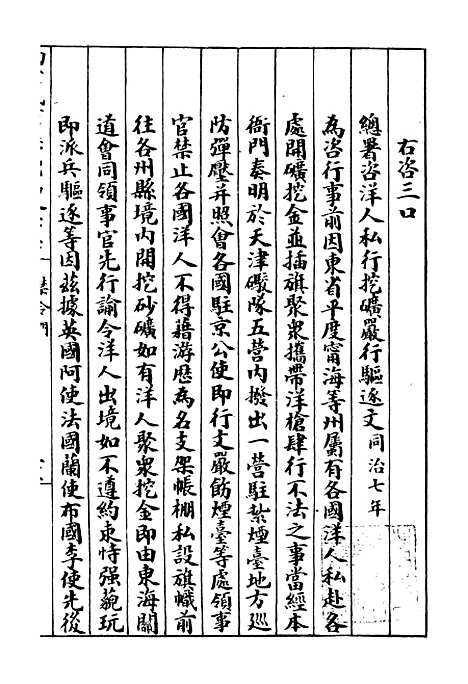 右咨三口
總署咨洋人私行挖礦嚴行驅逐文同治七年
為咨行事前因東省平度甯海等州屬有各國洋人私赴各
處開礦挖金並插旗聚眾攜帶洋槍肆行不法之事當經本
衙門奏明於天津礮隊五營內撥出一營駐紮煙臺地方巡
防彈壓并照會各國駐京公使即行文嚴飭煙臺等處領事
官禁止各國洋人不得藉游歷為名支架帳棚私設旗幟前
往各州縣境內開挖砂礦如有洋人聚眾挖金即由東海關
道會同領事官先行諭令洋人出境如不遵約束恃强藐玩
即派兵驅逐等因茲據英國阿使法國蘭使布國李使先後